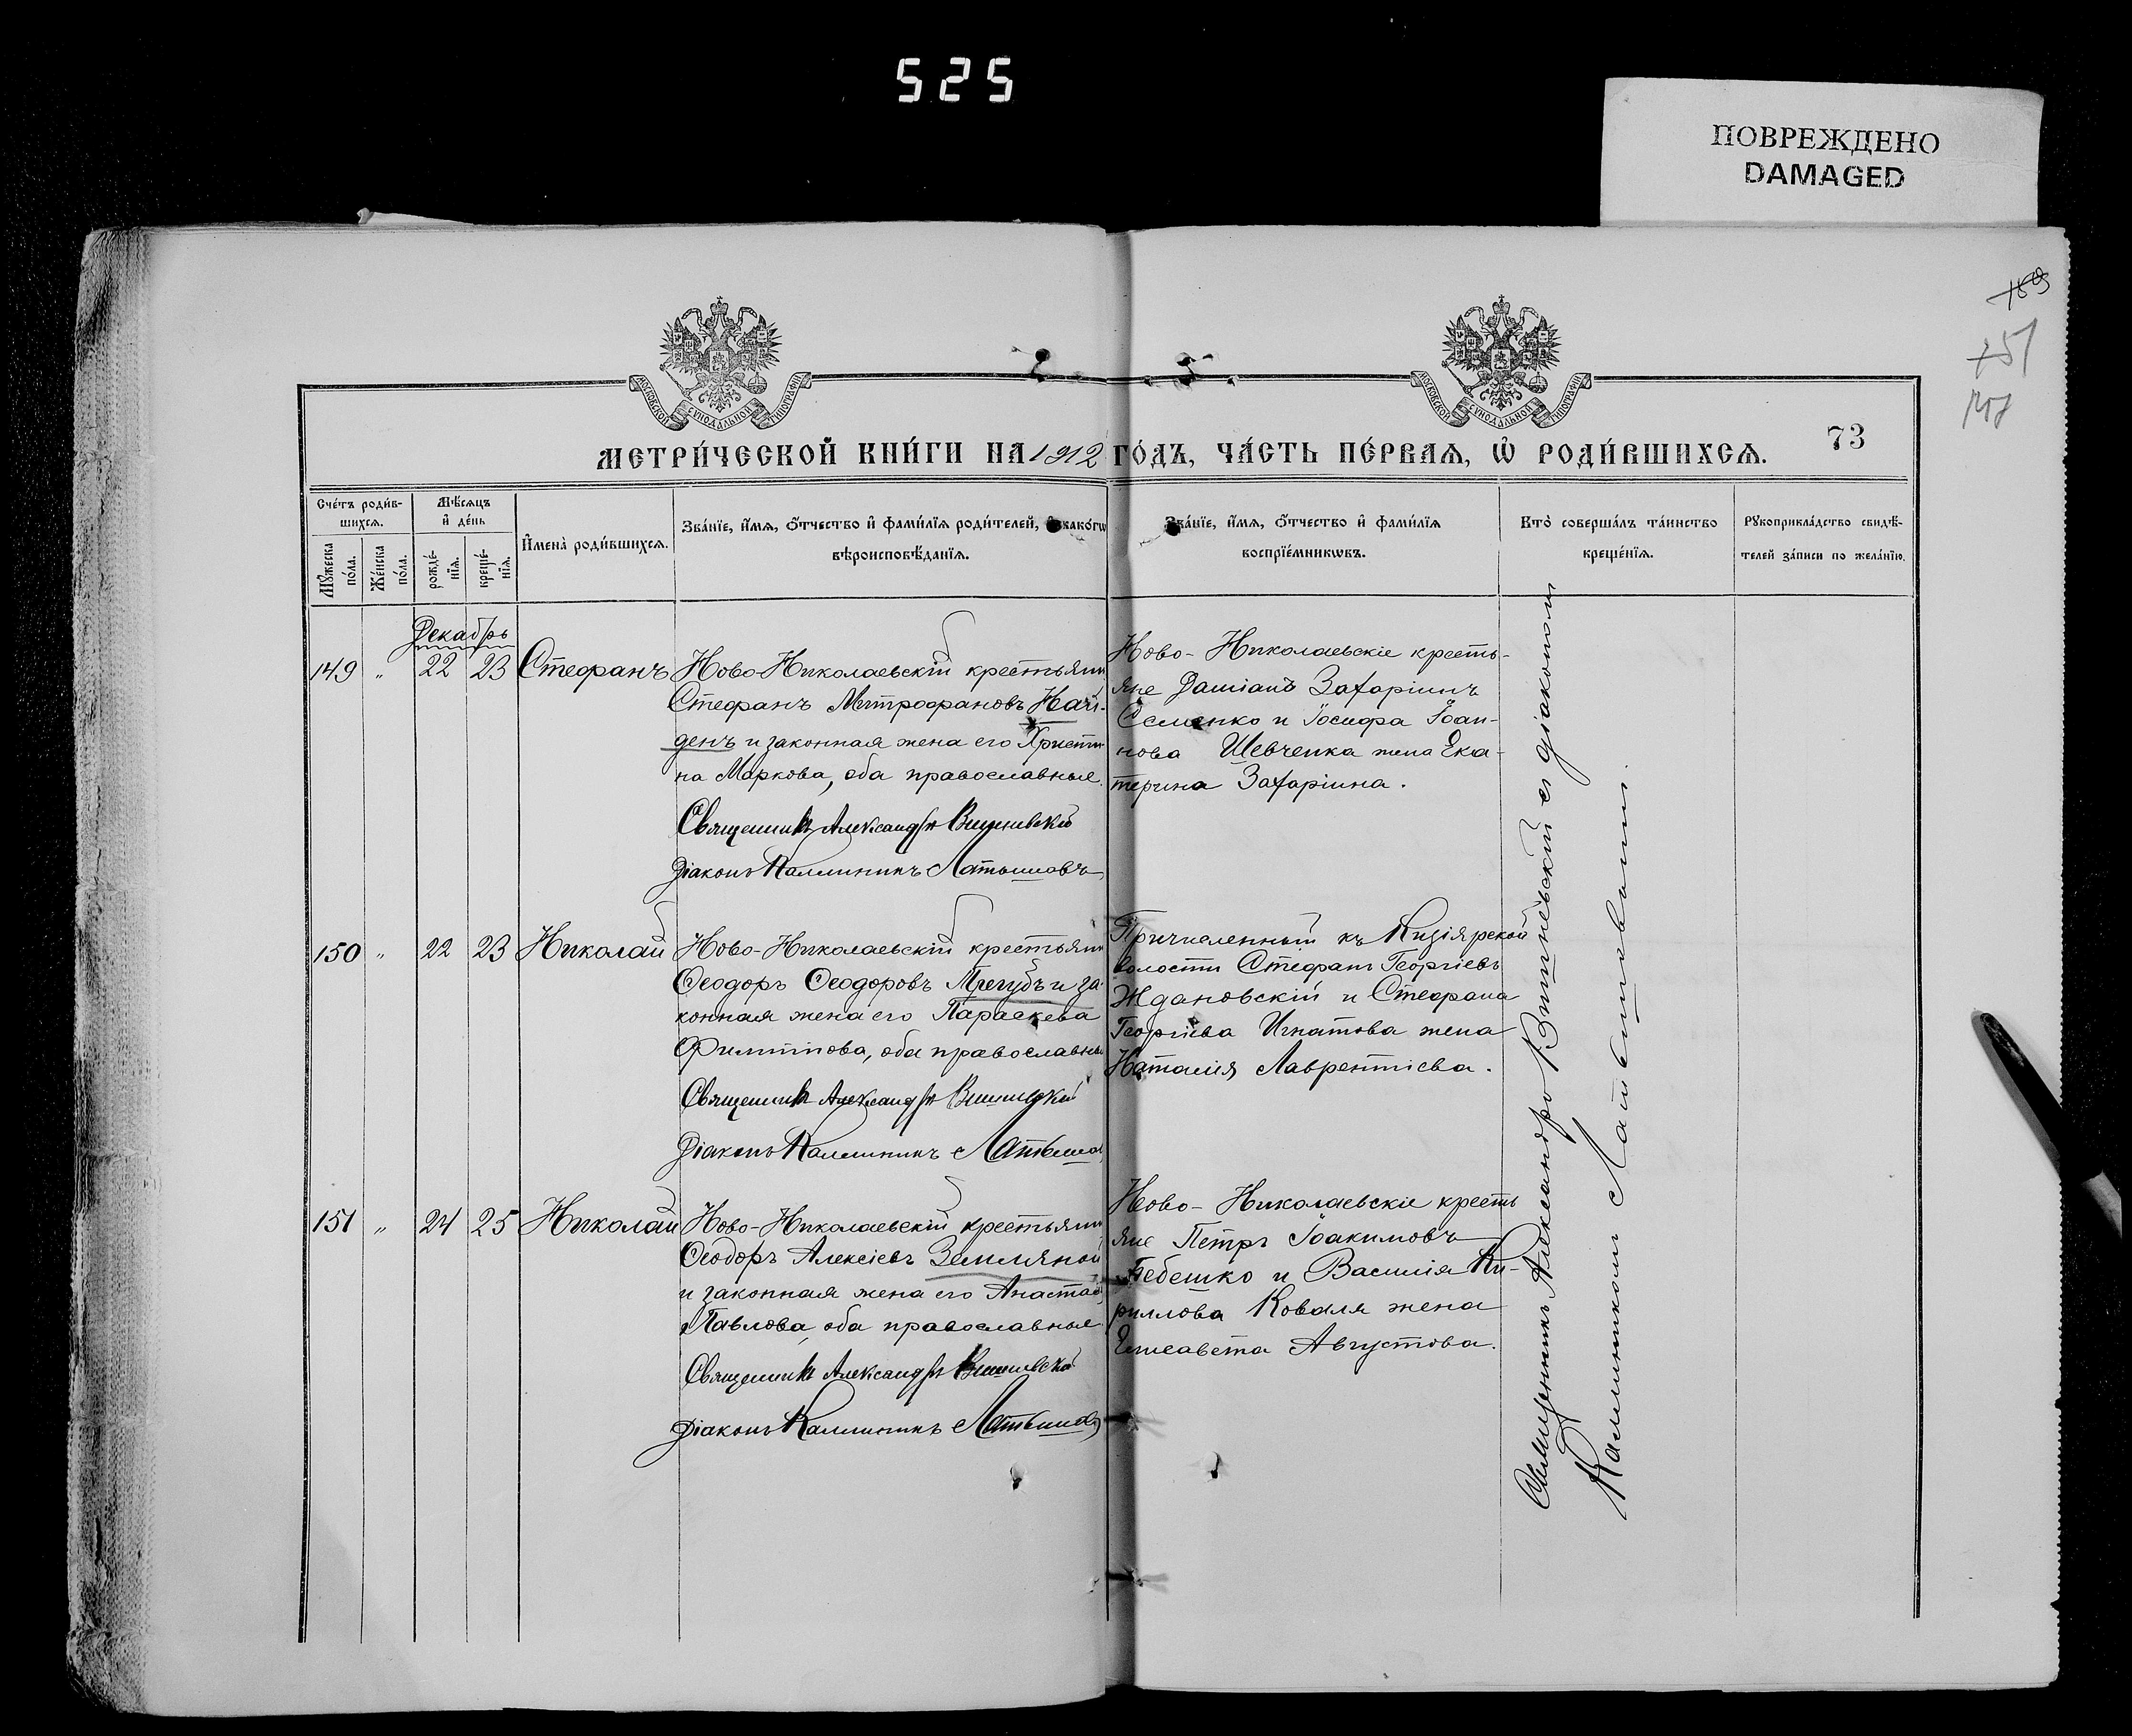 525
ПОВРЕЖДЕНО
DAMAGED
151
МОСКОВСКОЙ СѴНОДАЛЬНОЙ ТИПОГРАФІИ
МОСКОВСКОЙ СѴНОДАЛЬНОЙ ТИПОГРАФІИ
МЕТРИ́ЧЕСКОЙ КНИ́ГИ НА 1912 ГО́ДЪ, ЧА́СТЬ ПЕ́РВАѦ, Ѡ҆ РОДИ́ВШИХСѦ.
73
Сче́тъ роди́в-
шихсѧ.
Мѣ́сѧцъ
и҆ де́нь
Мꙋ́жеска
по́ла.
Же́нска
по́ла.
рожде́-
нїѧ.
креще́-
нїѧ.
И҆мена̀ роди́вшихсѧ.
Зва́нїе, и҆́мѧ, о҆́тчество и҆ фами́лїѧ роди́телей, и҆ како́гѡ
вѣроисповѣ́данїѧ.
Зва́нїе, и҆́мѧ, о҆́тчество и҆ фами́лїѧ
воспрїе́мникѡвъ.
Кто̀ соверша́лъ та́инство
креще́нїѧ.
Рꙋкоприкла́дство свидѣ́-
телей за́писи по жела́нїю.
Декабрь
149 " 22 23 Стефанъ
Ново-Николаевскій крестьянин
Стефанъ Митрофановъ Най-
денъ и законная жена его Христи-
на Маркова, оба православные.
Священникъ Александръ Вишневскій
Діаконъ Каллиникъ Латышовъ
Ново-Николаевскіе кресть-
яне Даміанъ Захаріинъ
Семенко и Іосифа Іоан-
нова Шевченка жена Ека-
терина Захаріина.
150 " 22 23 Николай
Ново-Николаевскій крестьянин
Ѳеодоръ Ѳеодоровъ и за-
конная жена его Параскева
Филиппова, оба православные
Священникъ Александръ Вишневскій
Діаконъ Каллиникъ Латышов
Причисленный къ Кизіярской
волости Стефанъ Георгіевъ
Ждановскій и Стефана
Георгіева Игнатова жена
Наталія Лаврентіева.
151 " 24 25 Николай
Ново-Николаевскій крестьянин
Ѳеодоръ Алексіевъ Земляной
и законная жена его Анастасія
Павлова, оба православные.
Священникъ Александръ Вишневскій
Діаконъ Каллиникъ Латышовъ
Ново-Николаевскіе кресть
яне Петръ Іоакимовъ
Бебешко и Василія Ки-
риллова Коваля жена
Елисавета Августова.
Священникъ Александръ Вишневскій съ діакономъ
Каллиникомъ Латышовымъ.